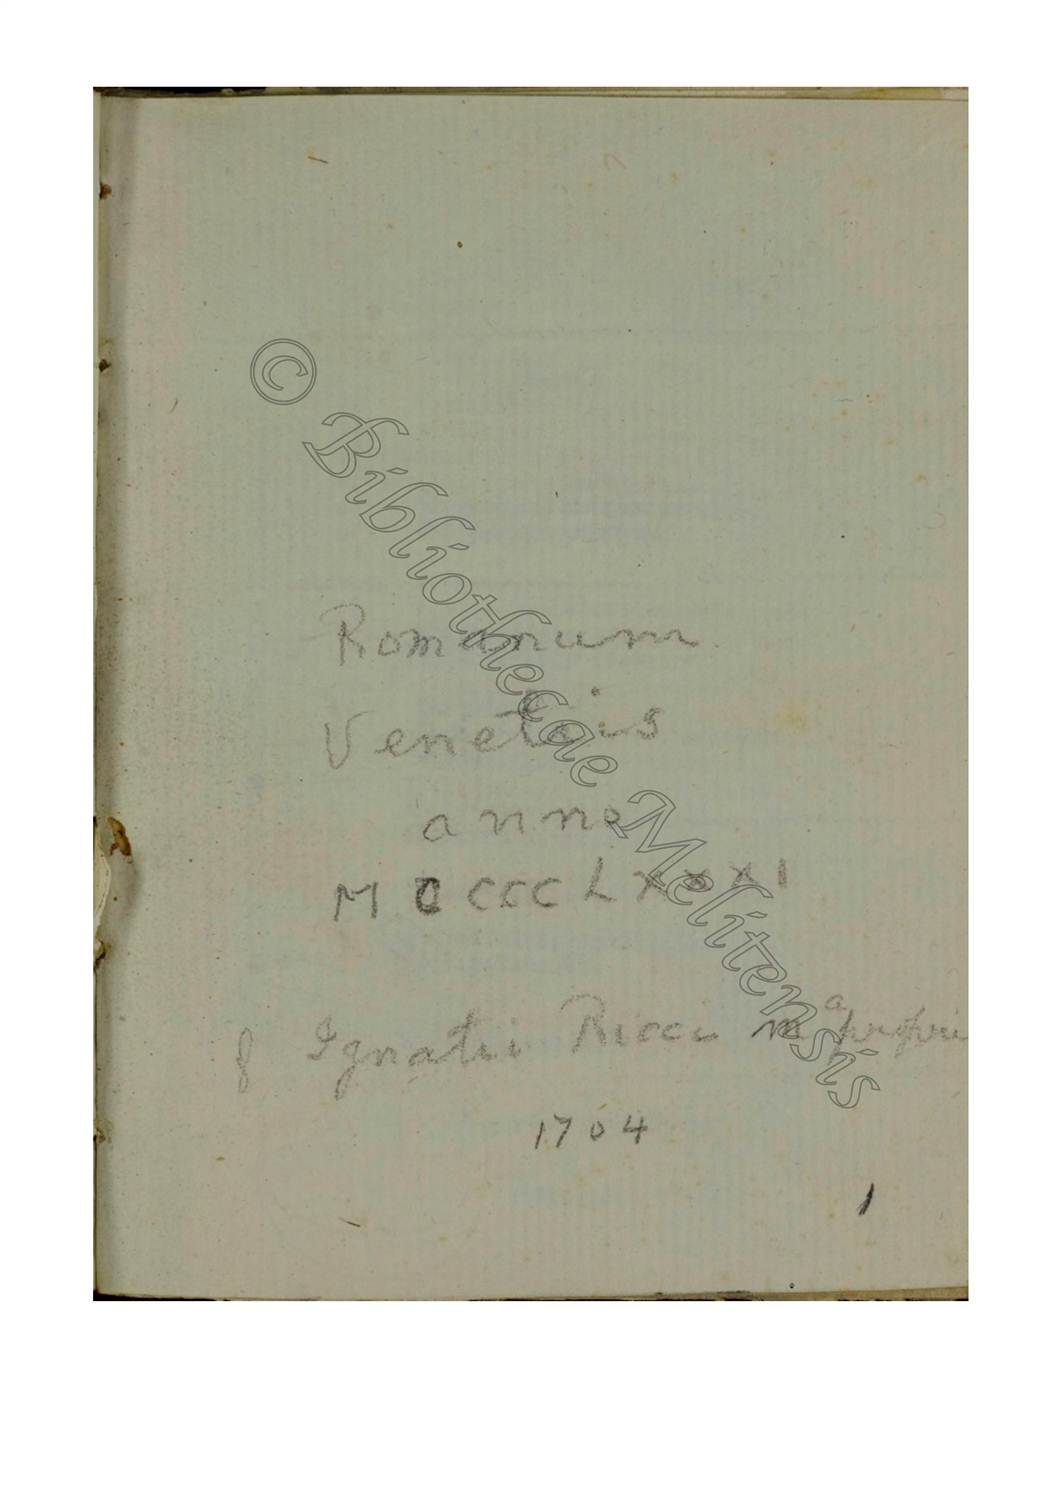 © Bibliothecae Melitensis
Romanum
Venetiis
anno
MCCCCLXXXI
f Ignatii Ricci mª propri
1704
1